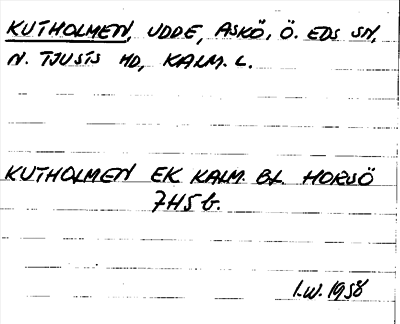 KUTHOLMEN, UDDE, ASKÖ, Ö. EDS SN,
N. TJUSTS HD, KALM. L.
KUTHOLMEN EK. KALM. BL. HORSÖ
7H5b.
I.W. 1958